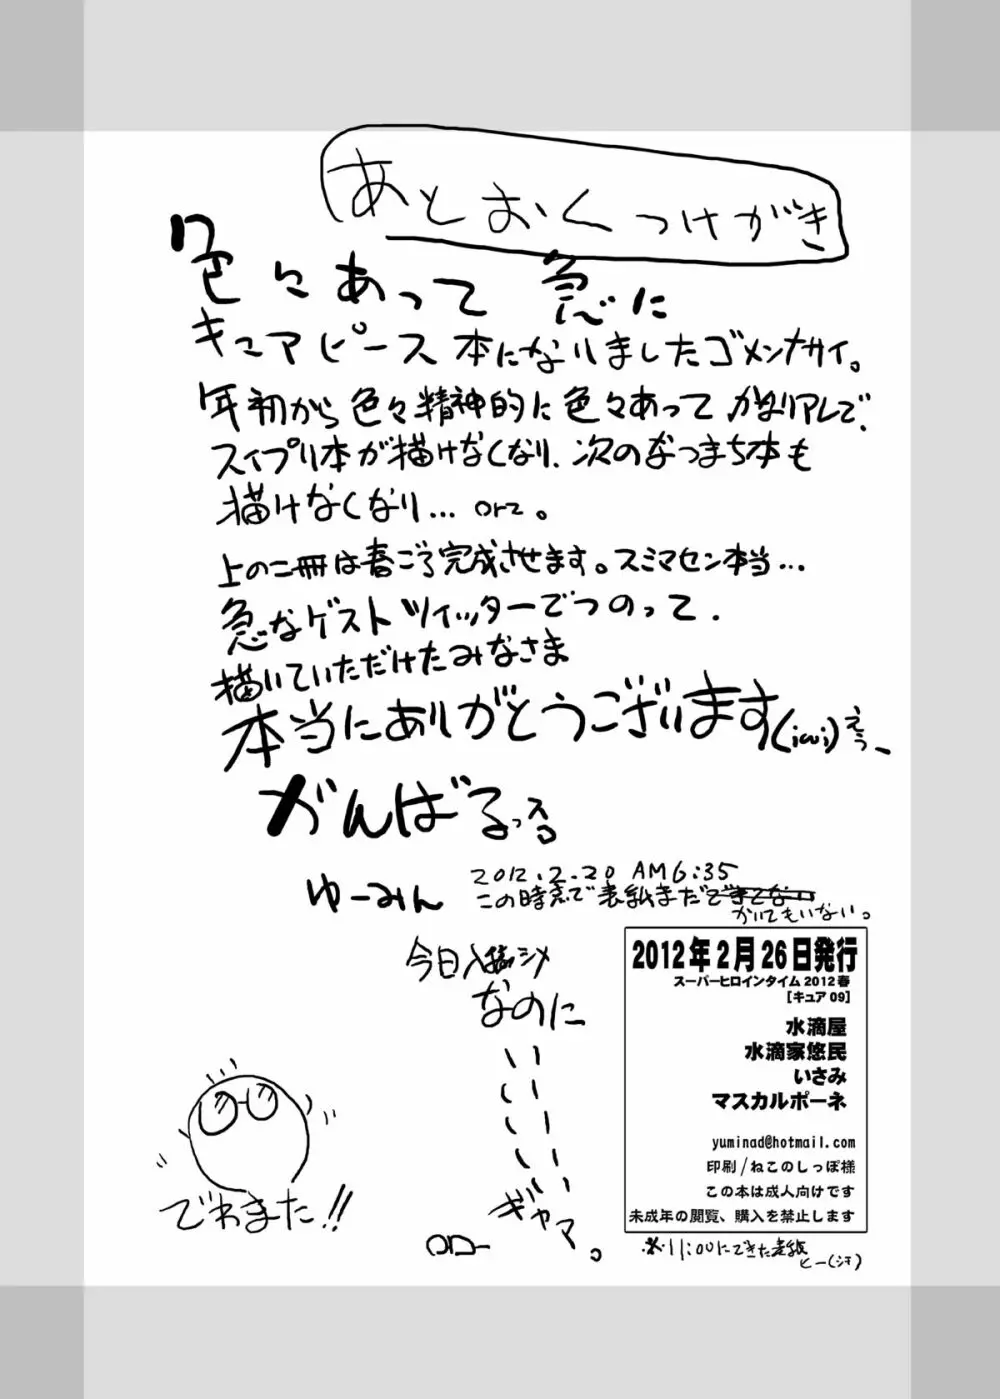 あとおくつけがき
色々あって 急に
キュアピース 本になりましたゴメンナサイ。
年初から色々精神的に色々あって かなりアレで、
スイプリ本が描けなくなり、次のなつまち本も
描けなくなり… orz。
上の二冊は春ごろ完成させます。スミマセン本当…
急なゲスト ツイッターでつのって、
描いていただけたみなさま
本当にありがとうございます(;ω;)えう、
がんばるっスる
ゆーみん
2012.2.20 AM6:35
この時点で表紙まだ
かいてもいない。
今日入稿シメ
なのに
、、、、、、
、、、、、、
ギャマ。
でわまた!!
2012年2月26日発行
スーパーヒロインタイム2012春
[キュア09]
水滴屋
水滴家悠民
いさみ
マスカルポーネ
yuminad@hotmail.com
印刷/ねこのしっぽ様
この本は成人向けです
未成年の閲覧、購入を禁止します
※11:00にできた表紙